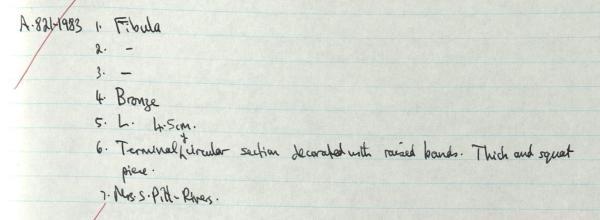 A.821-1983 1. Fibula
2. -
3. -
4. Bronze
5. L. 4.5cm.
6. Terminal + circular section decorated with raised bands. Thick and squat
piece.
7. Mrs. S. Pitt-Rivers.